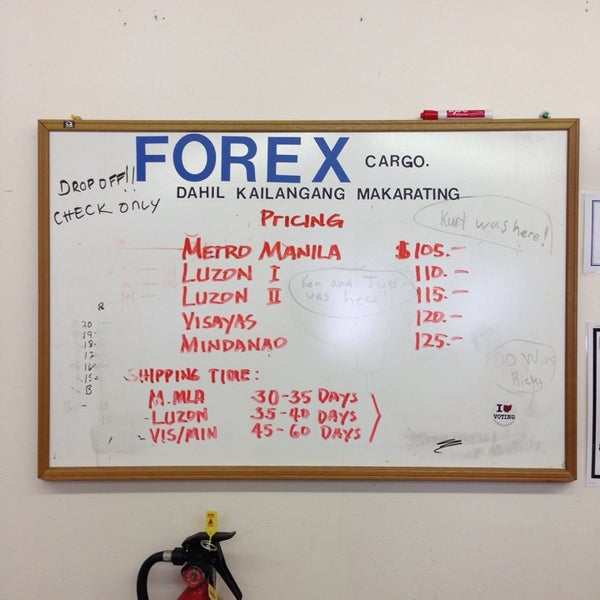 FOREX CARGO.
DAHIL KAILANGANG MAKARATING
DROP OFF!!
CHECK ONLY
PRICING
METRO MANILA $105.-
LUZON I 110.-
LUZON II 115.-
VISAYAS 120.-
MINDANAO 125.-
Kurt was here!
Ken and Just
was here!
SHIPPING TIME:
M.MLA 30-35 DAYS
-LUZON 35-40 DAYS
-VIS/MIN 45-60 DAYS
R
20
19-
18-
17
16-
15-
B
Ricky
I
VOTING